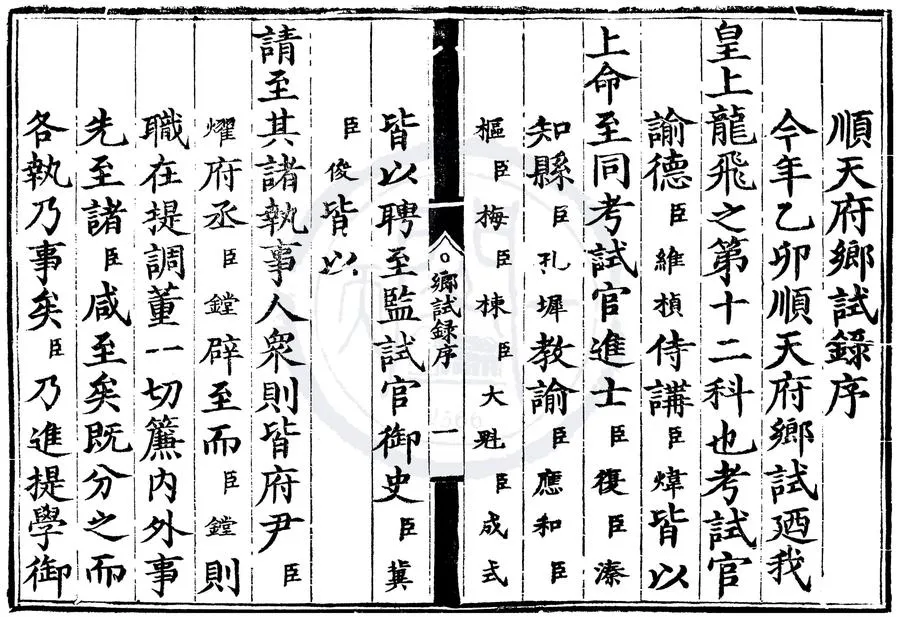 順天府鄉試錄序
今年乙卯順天府鄉試廼我
皇上龍飛之第十二科也考試官
諭德臣維楨侍講臣煒皆以
上命至同考試官進士臣復臣溱
知縣臣孔墀教諭臣應和臣
樞臣梅臣棟臣大魁臣成式
鄉試錄序 一
皆以聘至監試官御史臣冀
臣俊皆以
請至其諸執事人眾則皆府尹臣
燿府丞臣鏜辟至而臣鏜則
職在提調董一切簾內外事
先至諸臣咸至矣既分之而
各執乃事矣臣乃進提學御